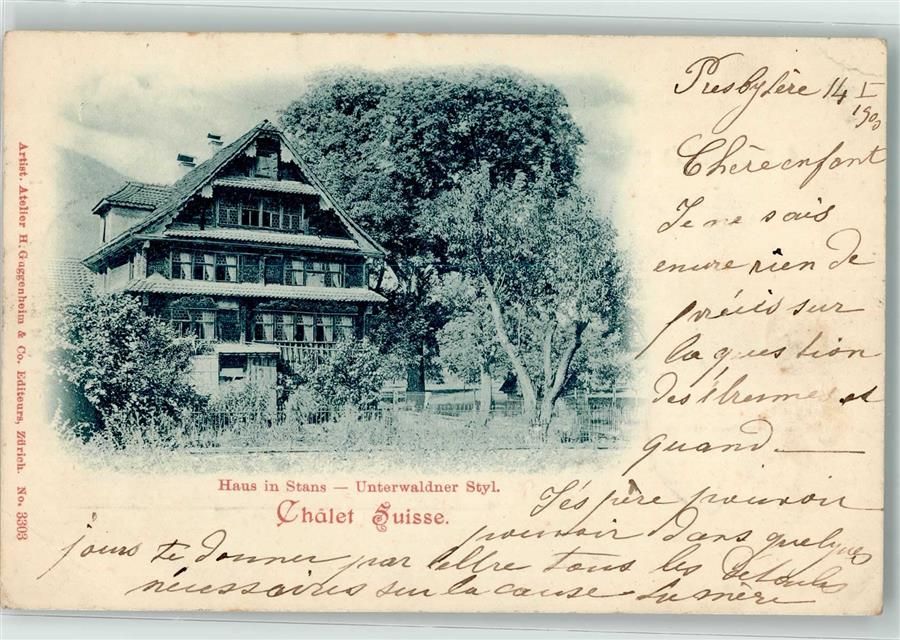 Presbytère 14 I
1900
Chère enfant
Je ne sais
encore rien de
précis sur
la question
des étrennes et
quand
J'espère pouvoir
pouvoir dans quelques
jours te donner par lettre tous les détails
nécessaires sur la cause. ta mère
Haus in Stans — Unterwaldner Styl.
Châlet Suisse.
Artist. Atelier H. Guggenheim & Co. Editeurs, Zürich. No. 3303